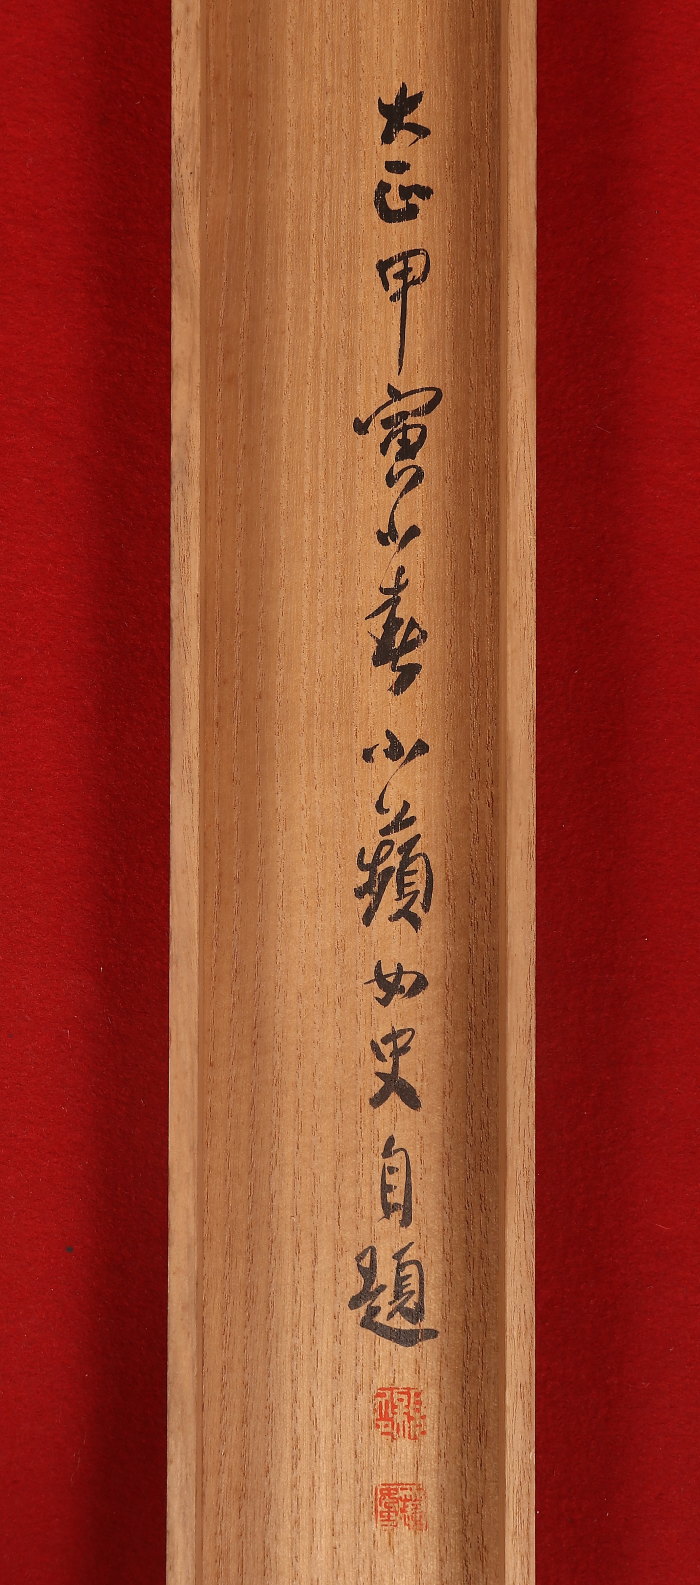 大正甲寅小春小蘋女史自題